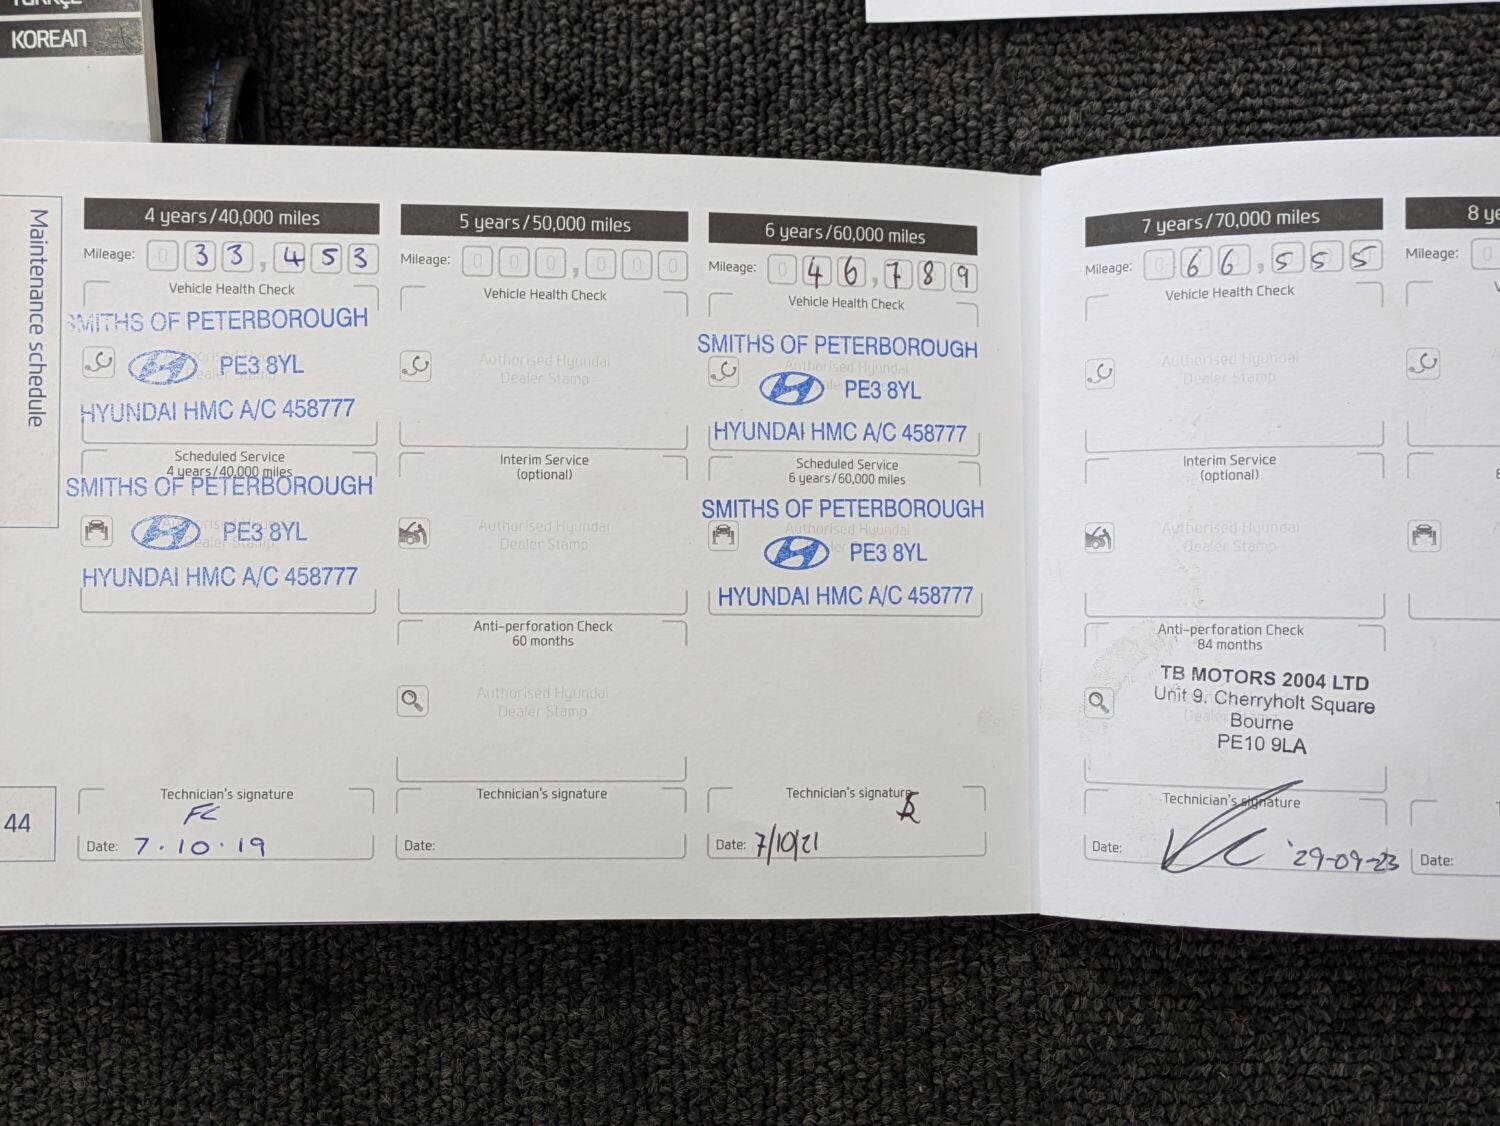 KOREAN
Maintenance schedule
44
4 years/40,000 miles
Mileage: 0 33,453
Vehicle Health Check
SMITHS OF PETERBOROUGH
PE3 8YL
HYUNDAI HMC A/C 458777
Scheduled Service
4 years/40,000 miles
SMITHS OF PETERBOROUGH
PE3 8YL
HYUNDAI HMC A/C 458777
Technician's signature
FC
Date: 7.10.19
5 years/50,000 miles
Mileage: 000,000
Vehicle Health Check
Authorised Hyundai
Dealer Stamp
Interim Service
(optional)
Authorised Hyundai
Dealer Stamp
Anti-perforation Check
60 months
Authorised Hyundai
Dealer Stamp
Technician's signature
Date:
6 years/60,000 miles
Mileage: 0 46,789
Vehicle Health Check
SMITHS OF PETERBOROUGH
Authorised Hyundai
PE3 8YL
HYUNDAI HMC A/C 458777
Scheduled Service
6 years/60,000 miles
SMITHS OF PETERBOROUGH
Authorised Hyundai
PE3 8YL
HYUNDAI HMC A/C 458777
Technician's signature
Date: 7/10/21
7 years/70,000 miles
Mileage: 0 66,555
Vehicle Health Check
Authorised Hyundai
Dealer Stamp
Interim Service
(optional)
Authorised Hyundai
Dealer Stamp
Anti-perforation Check
84 months
TB MOTORS 2004 LTD
Unit 9. Cherryholt Square
Bourne
PE10 9LA
Technician's signature
Date: 29-09-23
8 ye
Mileage: 0
Date: